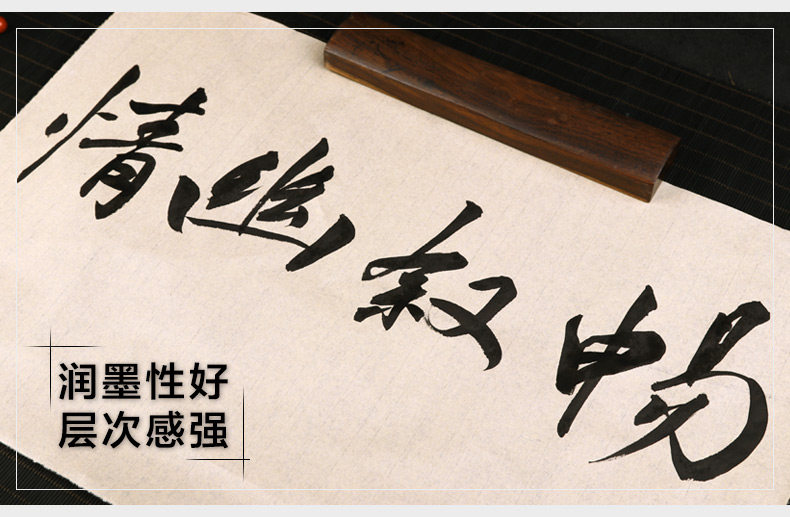 畅叙幽情
润墨性好
层次感强